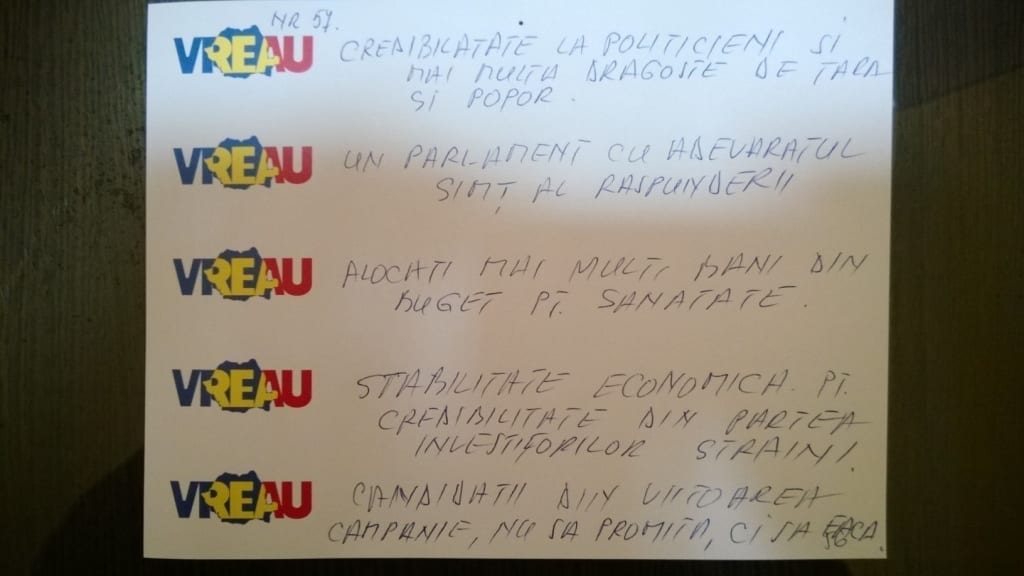 NR 57.
VREAU CREDIBILATATE LA POLITICIENI SI
MAI MULTA DRAGOSTE DE TARA
SI POPOR.
VREAU UN PARLAMENT CU ADEVARATUL
SIMȚ AL RASPUNDERII
VREAU ALOCATI MAI MULTI BANI DIN
BUGET PT. SANATATE.
VREAU STABILITATE ECONOMICA. PT.
CREDIBILITATE DIN PARTEA
INVESTITORILOR STRAINI.
VREAU CANDIDATII DIN VIITOAREA
CAMPANIE, NU SA PROMITA, CI SA FACA.